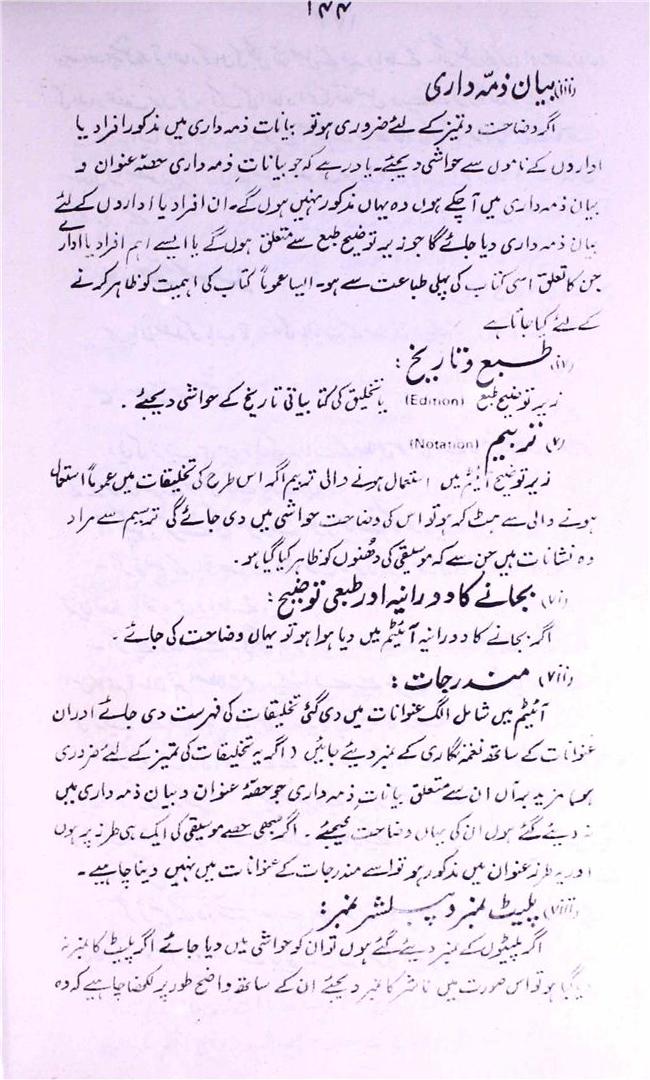 ۱۴۴
(iii) بیان ذمّہ داری
اگر وضاحت و تمیز کے لئے ضروری ہو تو بیانات ذمہ داری میں مذکور افراد یا
اداروں کے ناموں سے حواشی دیجئے۔ یاد رہے کہ جو بیانات ذمہ داری حصۂ عنوان و
بیان ذمہ داری میں آ چکے ہوں وہ یہاں مذکور نہیں ہوں گے۔ ان افراد یا اداروں کے لئے
بیان ذمہ داری دیا جائے گا جو زیر توضیح طبع سے متعلق ہوں گے یا ایسے اہم افراد یا ادارے
جن کا تعلق اسی کتاب کی پہلی طباعت سے ہو۔ ایسا عموماً کتاب کی اہمیت کو ظاہر کرنے
کے لئے کیا جاتا ہے
(iv) طبع و تاریخ :
زیر توضیح طبع (Edition) یا تخلیق کی کتابیاتی تاریخ کے حواشی دیجئے ۔
(v) ترسیم (Notation)
زیر توضیح آئیٹم میں استعمال ہونے والی ترسیم اگر اس طرح کی تخلیقات میں عموماً استعمال
ہونے والی سے ہٹ کر ہو تو اس کی وضاحت حواشی میں دی جائے گی ترسیم سے مراد
وہ نشانات ہیں جن سے کہ موسیقی کی دُھنوں کو ظاہر کیا گیا ہو ۔
(vi) بجانے کا دورانیہ اور طبعی توضیح :
اگر بجانے کا دورانیہ آئیٹم میں دیا ہوا ہو تو یہاں وضاحت کی جائے ۔
(vii) مندرجات :
آئیٹم میں شامل الگ عنوانات میں دی گئی تخلیقات کی فہرست دی جائے اور ان
عنوانات کے ساتھ نغمہ نگاری کے نمبر دیئے جائیں ( اگر یہ تخلیقات کی تمیز کے لئے ضروری
ہو) مزید بہ آں ان سے متعلق بیانات ذمہ داری جو حصۂ عنوان و بیان ذمہ داری میں
نہ دیئے گئے ہوں ان کی یہاں وضاحت کیجئے ۔ اگر سبھی حصے موسیقی کی ایک ہی طرز پر ہوں
اور یہ طرز عنوان میں مذکور ہو تو اسے مندرجات کے عنوانات میں نہیں دینا چاہیے ۔
(viii) پلیٹ نمبر و پبلشر نمبر :
اگر پلیٹوں کے نمبر دیئے گئے ہوں تو ان کو حواشی میں دیا جائے اگر پلیٹ کا نمبر نہ
دیا گیا ہو تو اس صورت میں ناشر کا نمبر دیجئے ان کے ساتھ واضح طور پر لکھنا چاہیے کہ وہ